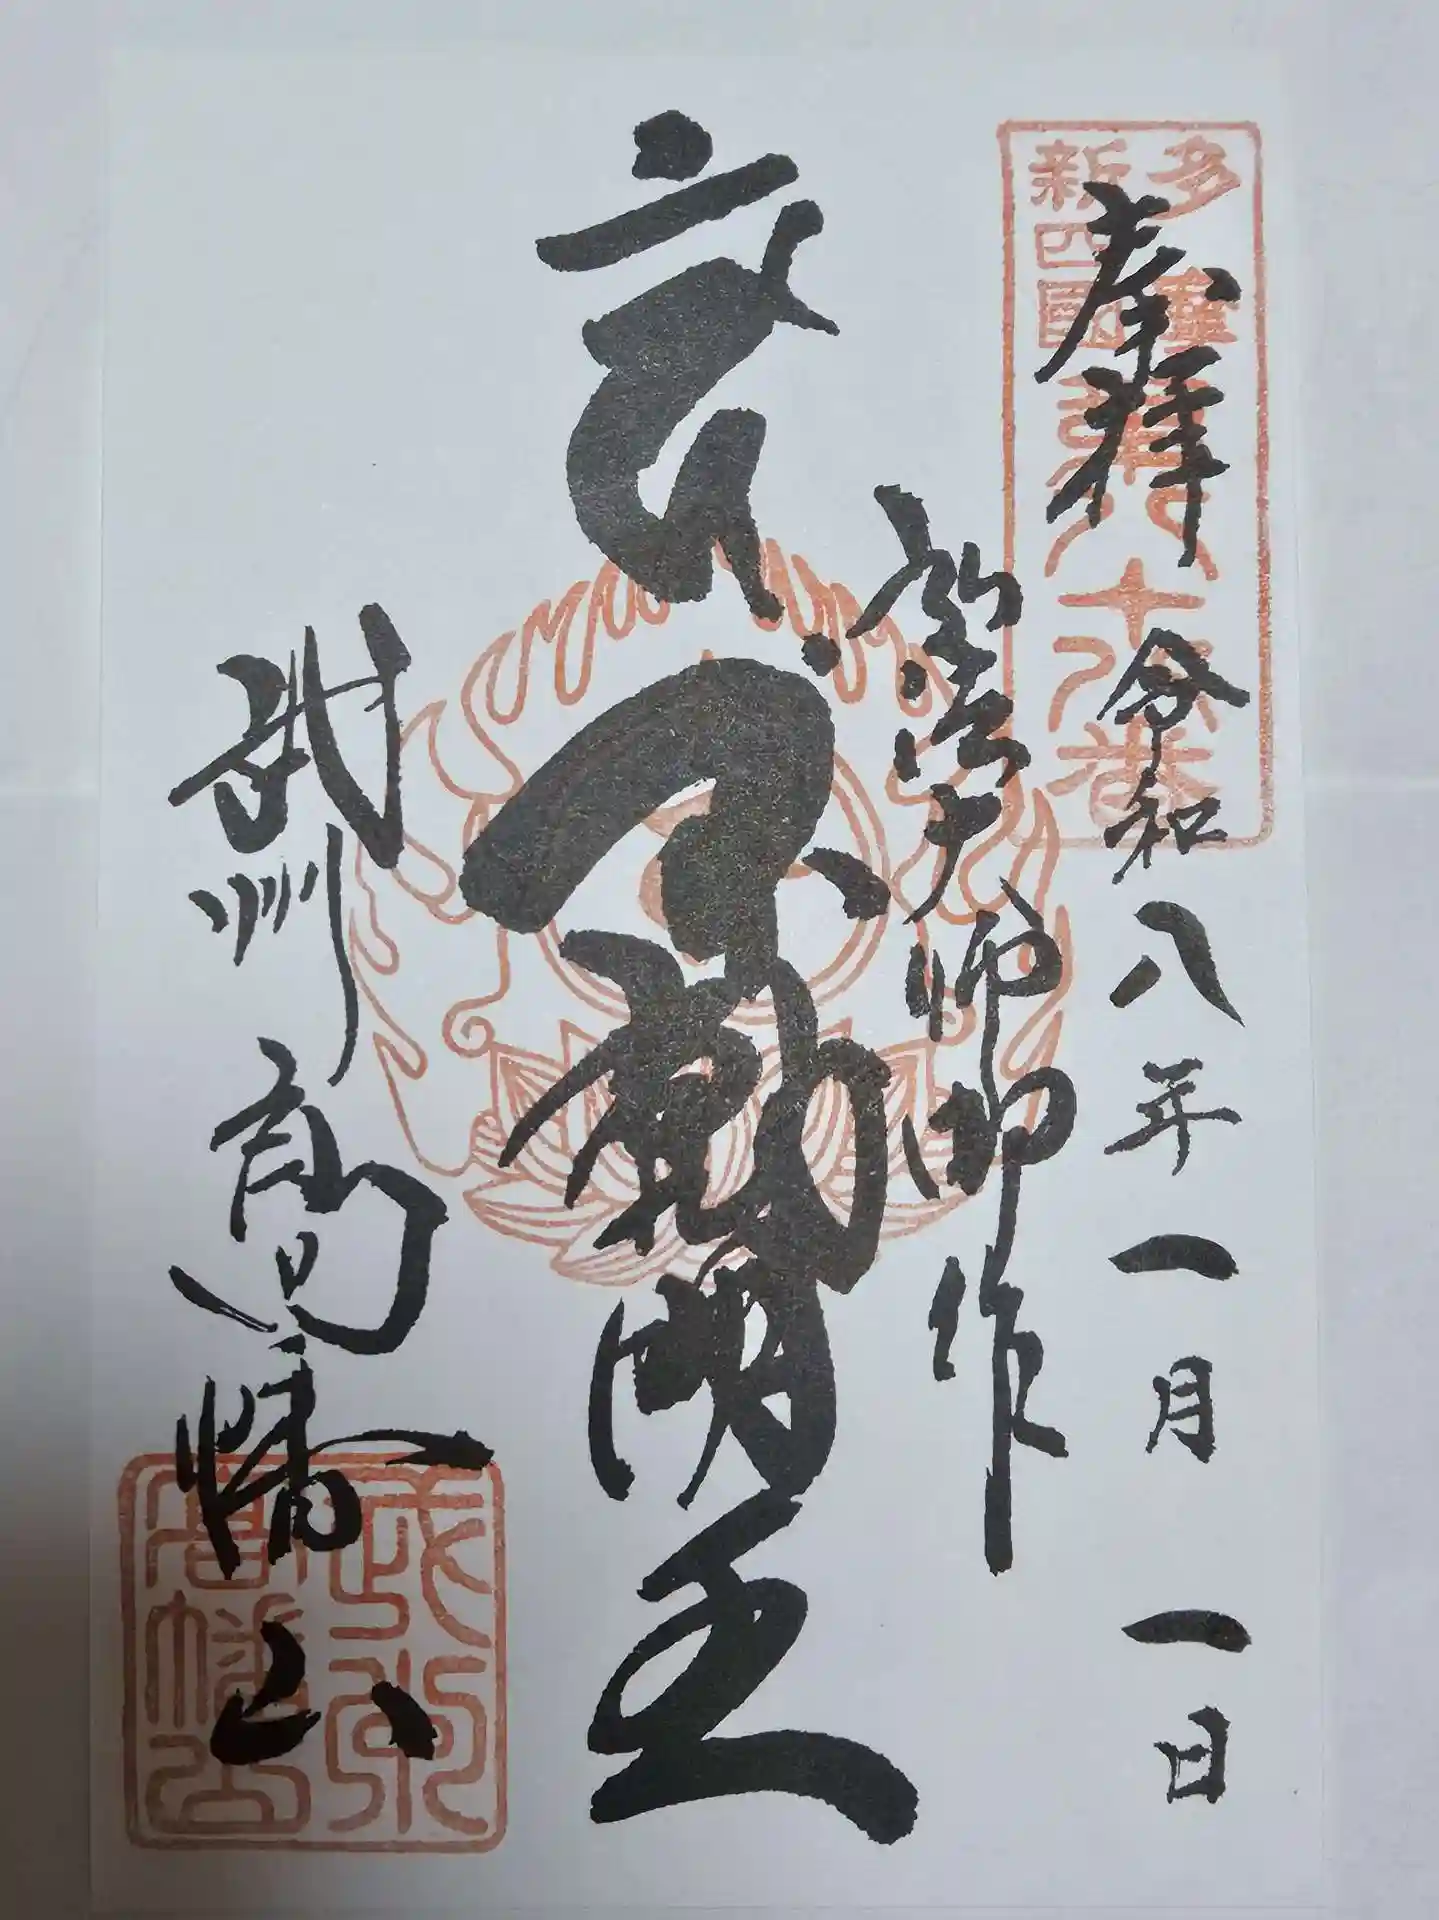 奉拝 令和八年一月一日
多摩
新四國
第八十八番
弘法大師御作
不動明王
武州高幡山
武州
高幡山